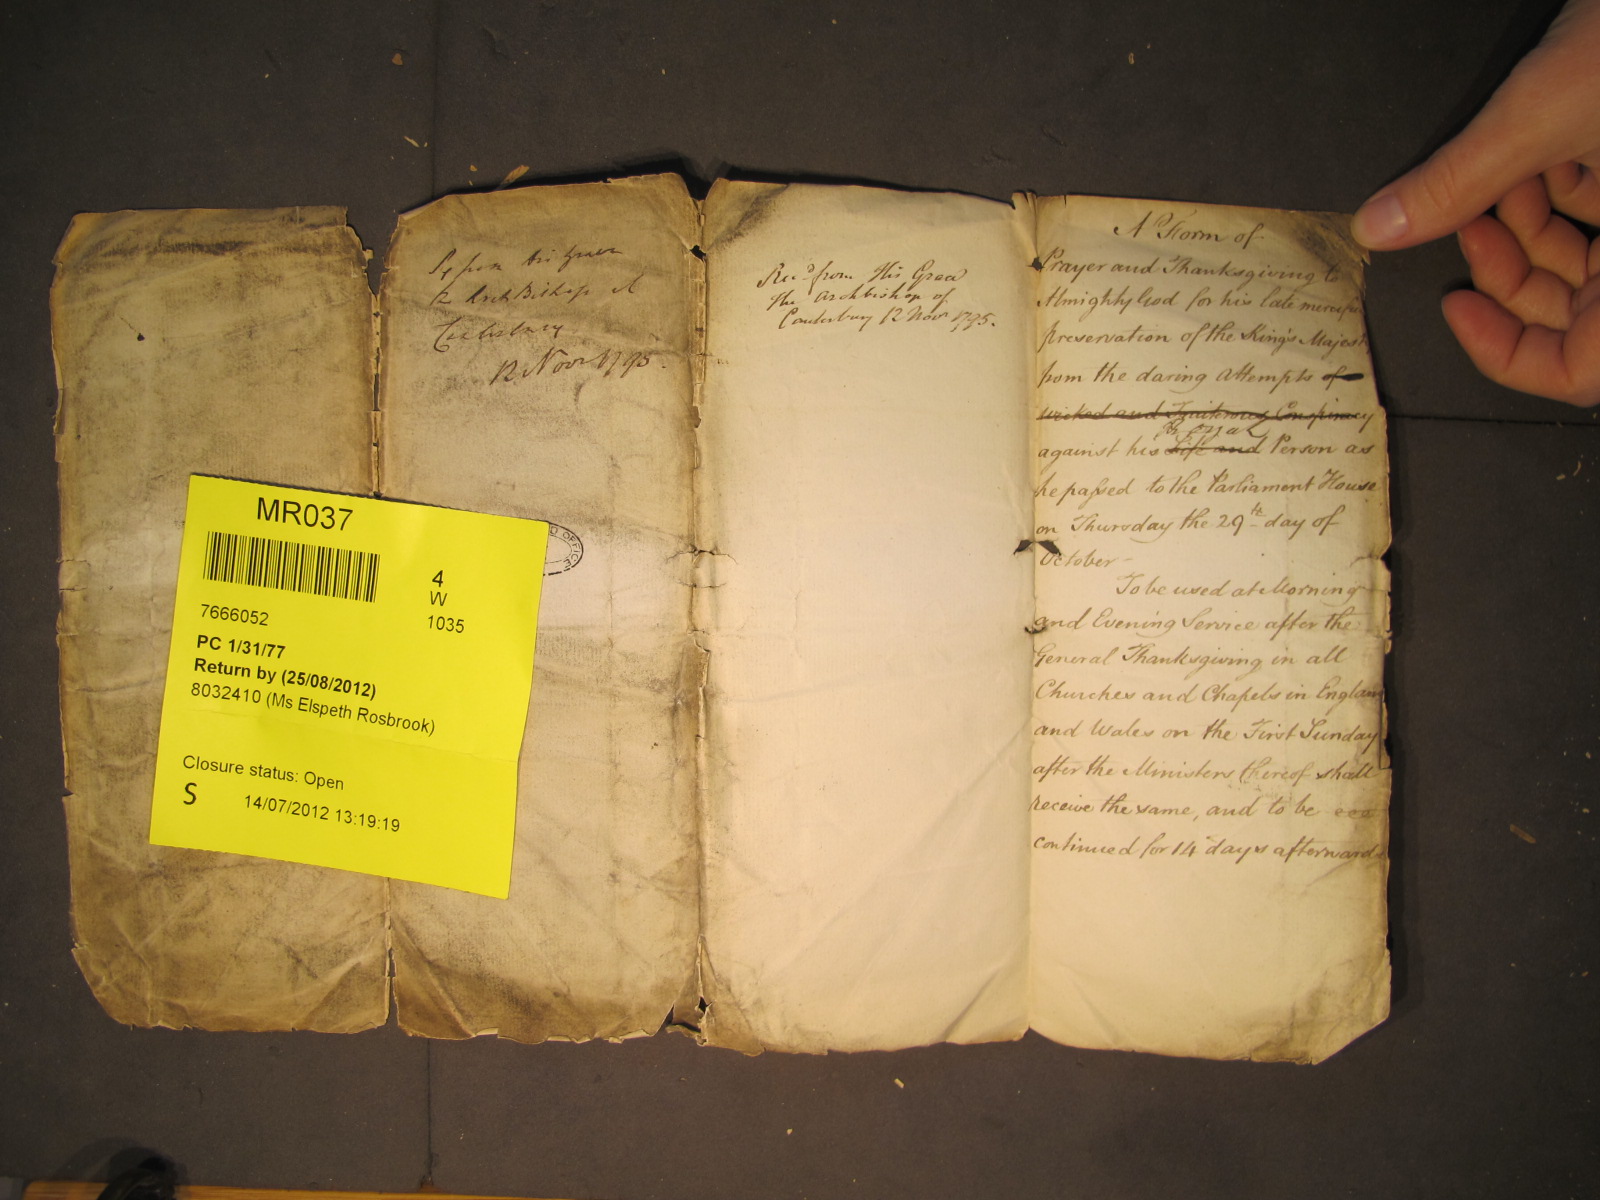 from His Grace
ArchBishop of
Canterbury
12 Novr. 1795.
Recd. from His Grace
the Archbishop of
Canterbury 12 Novr 1795.
A Form of
Prayer and Thanksgiving to
Almighty God for his late merciful
preservation of the King's Majesty
from the daring Attempts of
wicked and Traiterous Conspiracy
Royal
against his Life and Person as
he passed to the Parliament House
on Thursday the 29th day of
October -
To be used at Morning
and Evening Service after the
General Thanksgiving in all
Churches and Chapels in England
and Wales on the First Sunday
after the Ministers thereof shall
receive the same, and to be
continued for 14 days afterwards
MR037
4
W
1035
7666052
PC 1/31/77
Return by (25/08/2012)
8032410 (Ms Elspeth Rosbrook)
Closure status: Open
S 14/07/2012 13:19:19
OFFICE